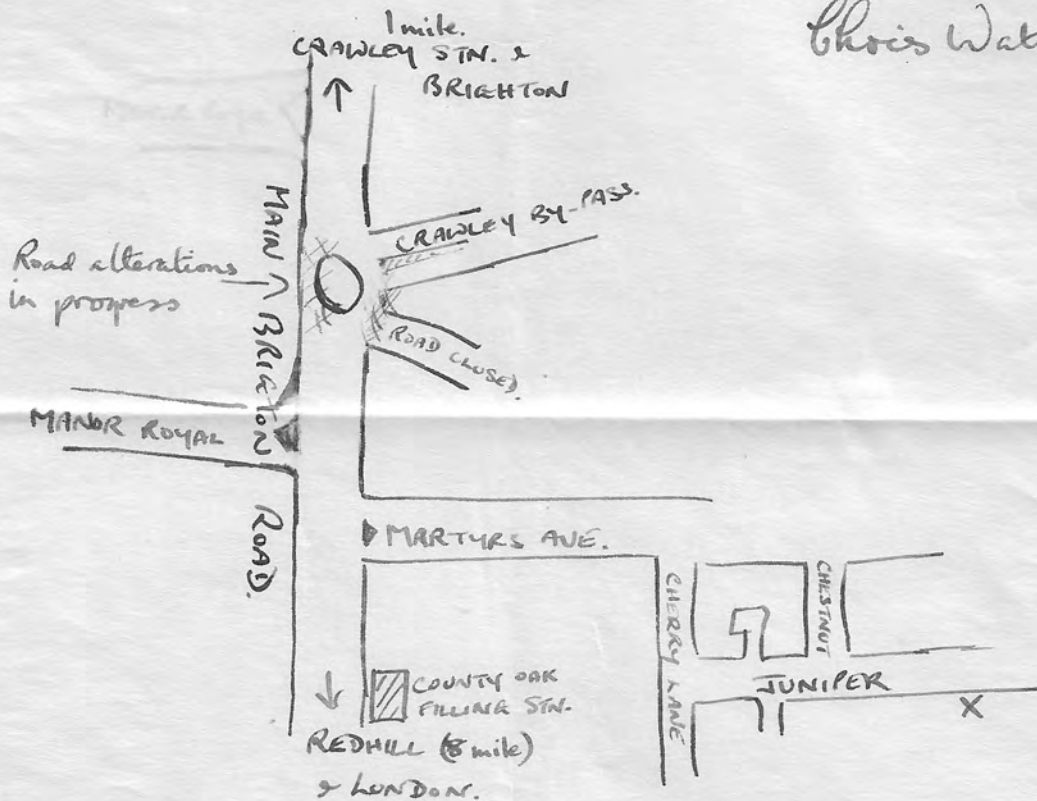 1 mile.
CRAWLEY STN. &
BRIGHTON
Chris Wat
CRAWLEY BY-PASS.
Road alterations
in progress
MAIN BRIGHTON ROAD.
ROAD CLOSED.
MANOR ROYAL
MARTYRS AVE.
CHERRY LANE
CHESTNUT
JUNIPER
X
COUNTY OAK
FILLING STN.
REDHILL (8 mile)
& LONDON.